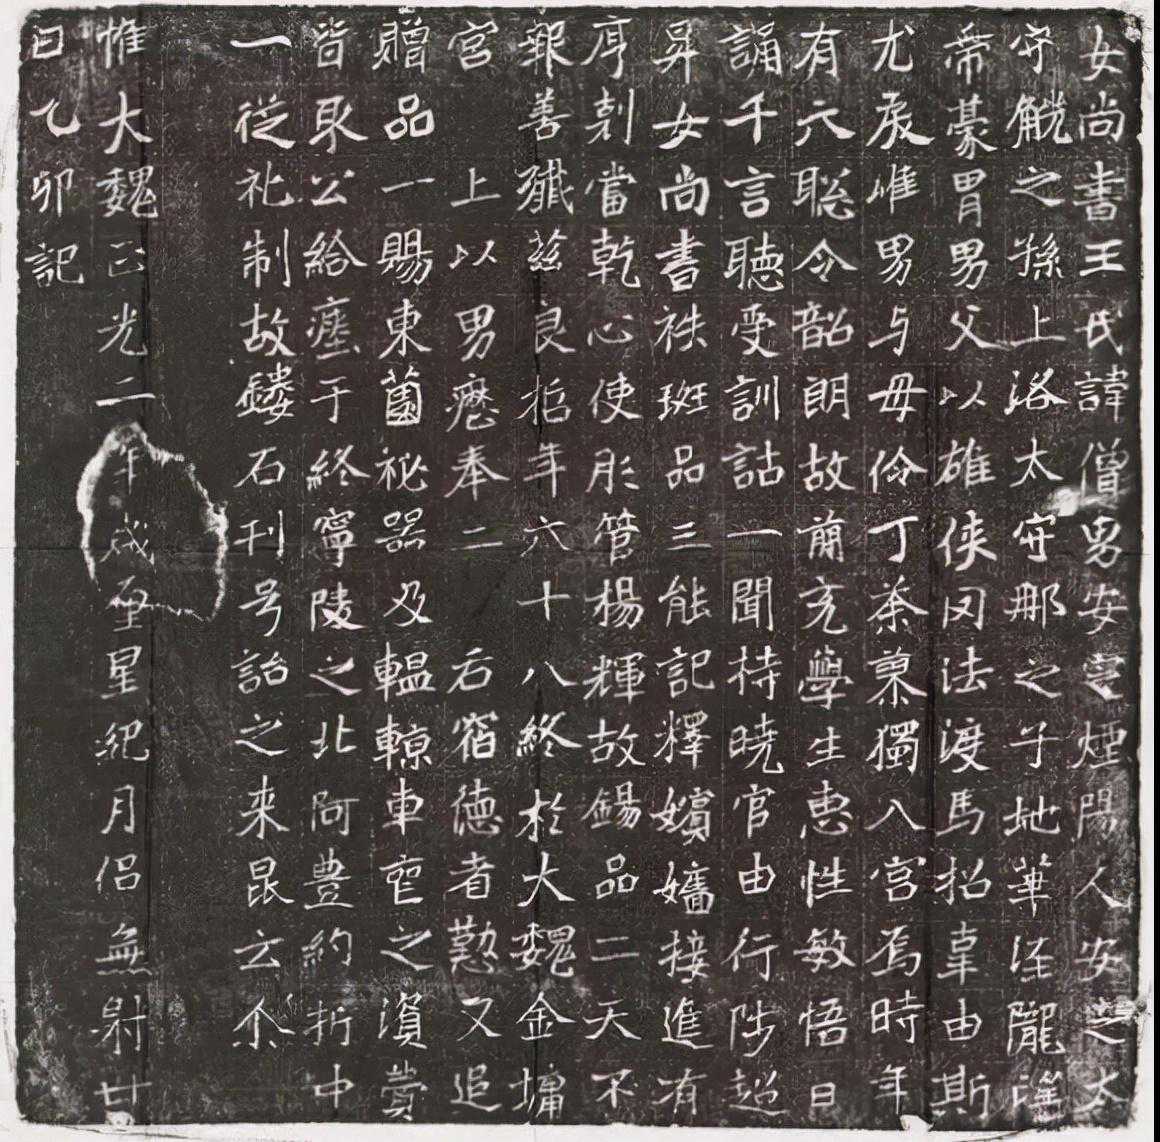 女尚書王氏諱僧男安定煙陽人安定太
守觥之孫上洛太守那之子地華涇隴望
帝豪胄男父以雄俠罔法渡馬招辜由斯
尤戾唯男与母伶丁荼蓼獨入宮焉時年
有六聡令韶朗故簡充學生惠性敏悟日
誦千言聽受訓詁一聞持曉官由行陟超
昇女尚書秩班品三能記釋嬪嬙接進有
序剋當乾心使彤管楊輝故錫品二天不
報善殲茲良哲年六十八終於大魏金墉
宮上以男歷奉二后宿德者懃又追
贈品一賜東薗祕器及轀輬車㐮之濱葬
皆取公給瘞于終寧陵之北阿豊約折中
一從礼制故鏤石刊号詒之来昆云尒
惟大魏正光二年歲在星紀月侶無射廿
日乙卯記